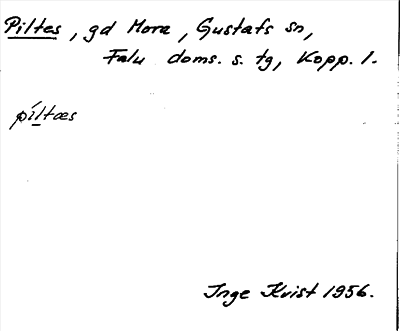 Piltes, gd Mora, Gustafs sn,
Falu doms. s. tg, Kopp. l.
píltæs
Inge Kvist 1956.